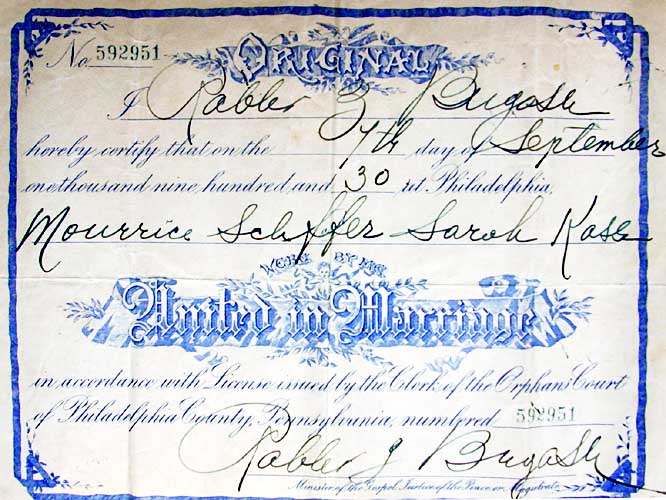 No 592951
ORIGINAL
I Rabbi J Bugash
hereby certify that on the 7th day of September
one thousand nine hundred and 30 at Philadelphia,
Mourrice Schffer Sarah Kass
WERE BY ME
United in Marriage
in accordance with License issued by the Clerk of the Orphans Court
of Philadelphia County, Pennsylvania, numbered 592951
J
Minister of the Gospel, Justice of the Peace or Magistrate